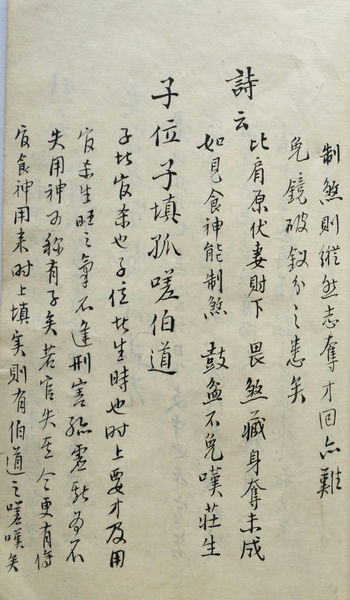 制煞則縱然志奪才回亦難
免鏡破釵分之患矣
詩云
比肩原伏妻財下 畏煞藏身奪未成
如見食神能制煞 鼓盆不免嘆莊生
子位子填孤嗟伯道
子比官杀也子位比生時也时上要才及用
官杀生旺之氣不逢刑害孤虛 為不
失用神可称有子矣若官失 令更有傷
官食神用来时上填实則有伯道之嗟嘆矣